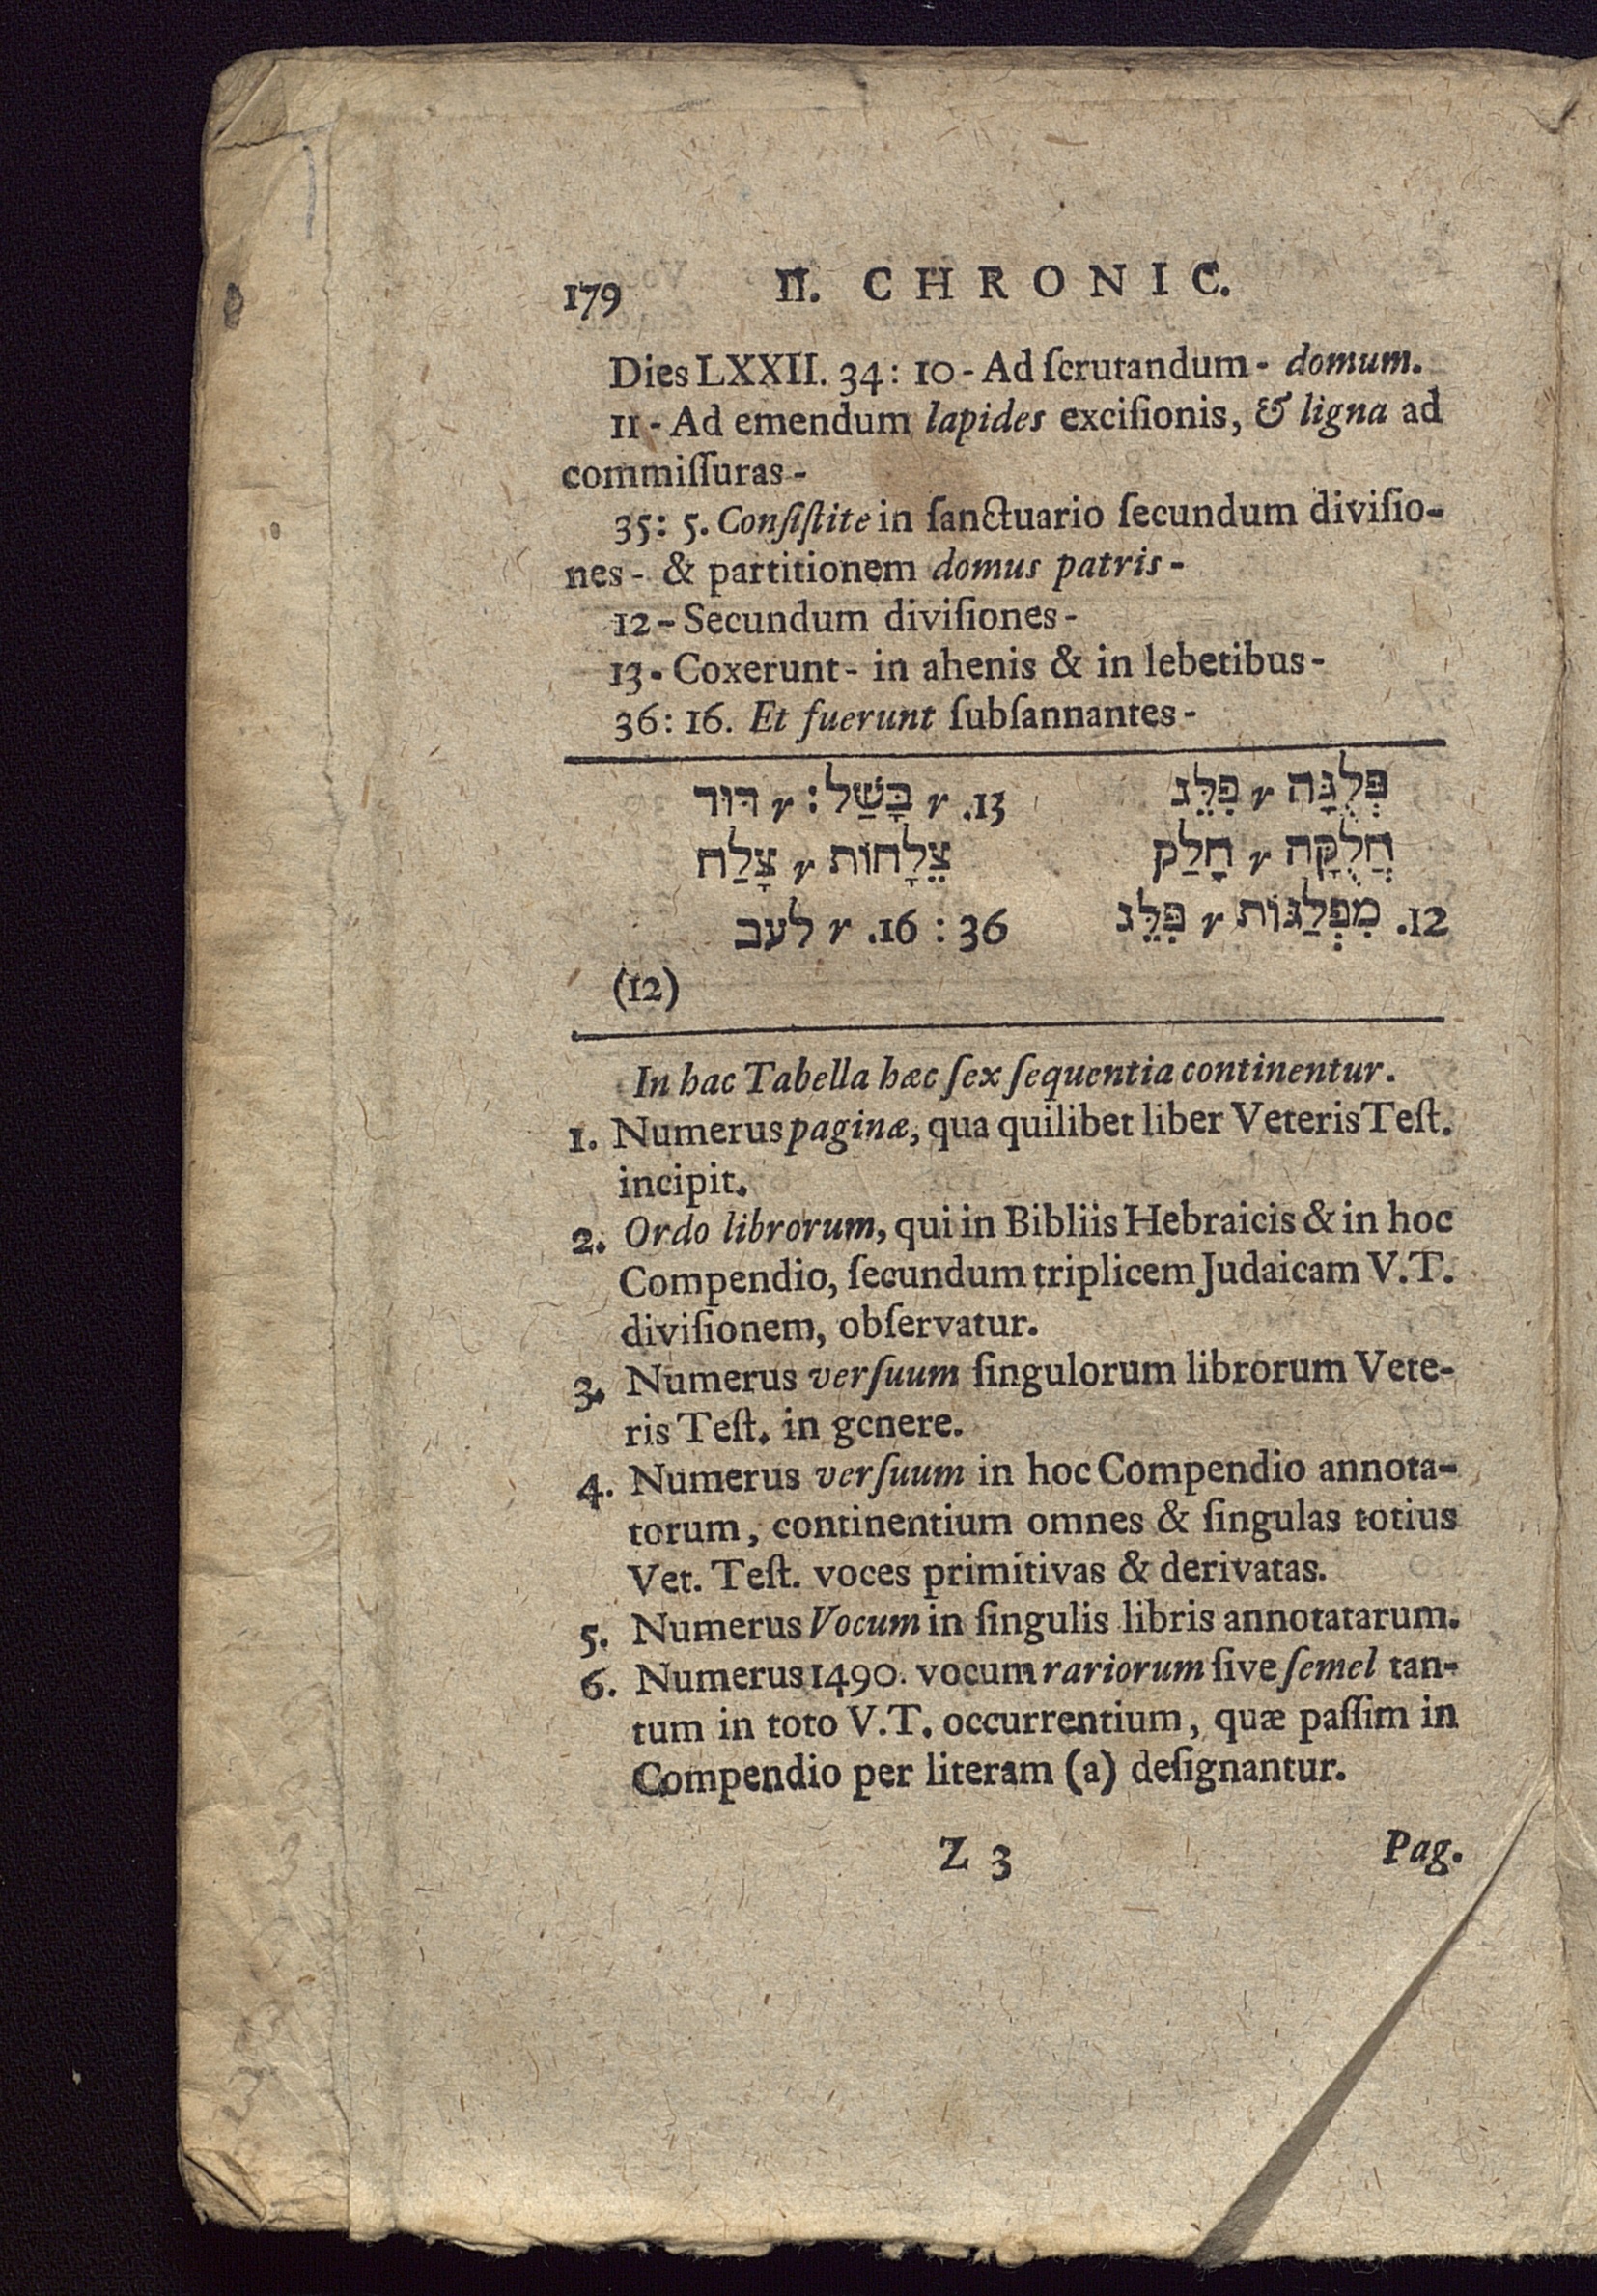 179 II. CHRONIC.
Dies LXXII. 34: 10 - Ad ſcrutandum - domum.
11 - Ad emendum lapides exciſionis, & ligna ad
commiſſuras -
35: 5. Conſiſtite in ſanctuario ſecundum diviſio-
nes - & partitionem domus patris -
12 - Secundum diviſiones -
13. Coxerunt - in ahenis & in lebetibus -
36: 16. Et fuerunt ſubſannantes -
פְּלֻגָּה r פִּלֵּג
חֲלֻקָּה r חָלַק
12. מִפְלַגּוֹת r פִּלֵּג
13. r בָּשַׁל: r דּוּד
צֵלָחוֹת r צָלַח
36: 16. r לעב
(12)
In hac Tabella hæc ſex ſequentia continentur.
1. Numerus paginæ, qua quilibet liber Veteris Teſt.
incipit.
2. Ordo librorum, qui in Bibliis Hebraicis & in hoc
Compendio, ſecundum triplicem Judaicam V.T.
diviſionem, obſervatur.
3. Numerus verſuum ſingulorum librorum Vete-
ris Teſt. in genere.
4. Numerus verſuum in hoc Compendio annota-
torum, continentium omnes & ſingulas totius
Vet. Teſt. voces primitivas & derivatas.
5. Numerus Vocum in ſingulis libris annotatarum.
6. Numerus 1490. vocum rariorum ſive ſemel tan-
tum in toto V.T. occurrentium, quæ paſſim in
Compendio per literam (a) deſignantur.
Z 3 Pag.